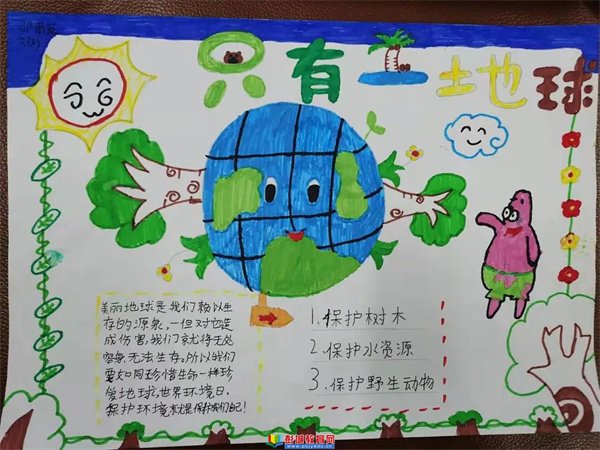 只有一地球
美丽地球是我们赖以生
存的源泉,一但对它造
成伤害,我们就将无处
容身,无法生存,所以我们
要如同珍惜生命一样珍
爱地球,世界环境日,
保护环境就是保护我们自己!
1.保护树木
2.保护水资源
3.保护野生动物
彭城教育网